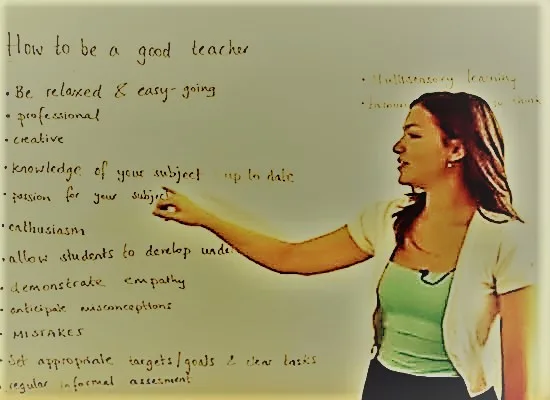 How to be a good teacher
• Be relaxed & easy-going
• professional
• creative
• knowledge of your subject up to date
• passion for your subject
• enthusiasm
• allow students to develop unde
• demonstrate empathy
• anticipate misconceptions
• MISTAKES
• Set appropriate targets/goals & clear tasks
• regular informal assesment
• Multisensory learning
• think